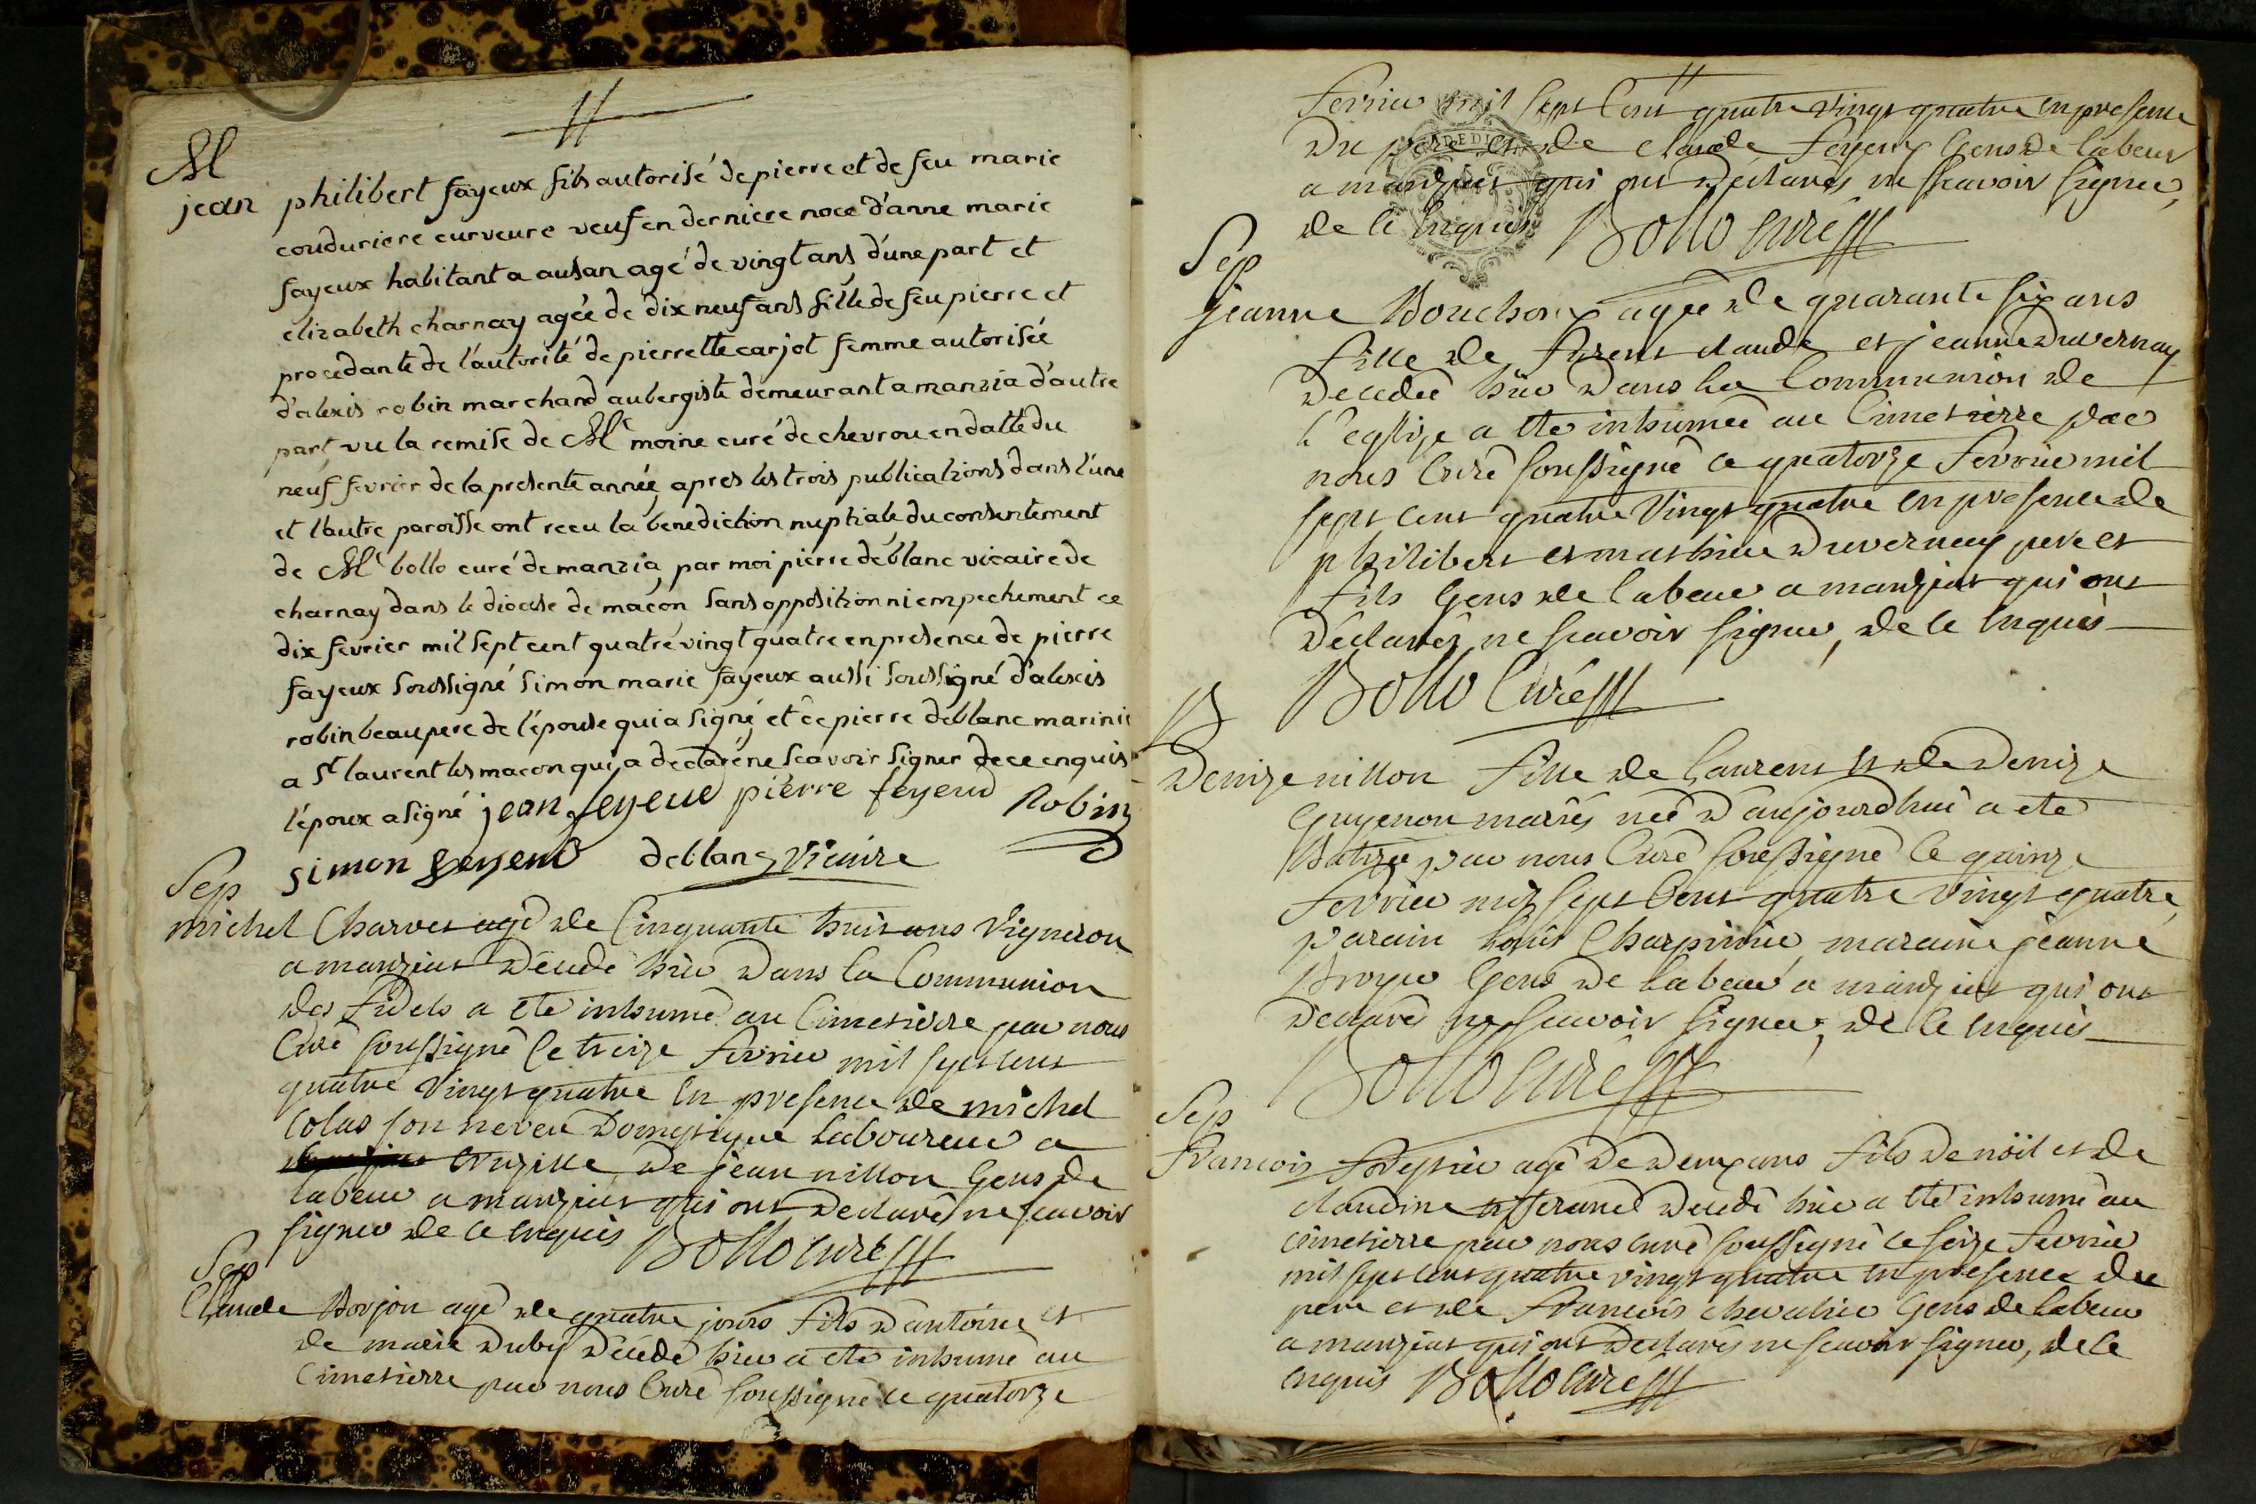 M
jean philibert fayeux fils autorisé de pierre et de feu marie
couduriere curveure veuf en derniere noce d'anne marie
fayeux habitant a ausan agé de vingt ans d'une part et
elizabeth charnay agée de dix neuf ans fille de feu pierre et
procedante de l'autorité de pierrette carjot femme autorisée
d'alexis robin marchand aubergiste demeurant a manzia d'autre
part, vu la remise de Mr moine curé de chevrou en datte du
neuf fevrier de la presente année, apres les trois publications dans l'une
et l'autre paroisse ont receu la benediction nuptiale du consentement
de Mr bollo curé de manzia, par moi pierre deblanc vicaire de
charnay dans le diocese de macon sans opposition ni empechement ce
dix fevrier mil sept cent quatre vingt quatre en presence de pierre
fayeux soussigné simon marie fayeux aussi soussigné d'alexis
robin beaupere de l'epouse qui a signé, et de pierre deblanc
a St laurent les macon qui a declaré ne scavoir signer de ce enquis
l'époux a signé jean feyeux pierre feyeux Robin
simon feyeux deblanc vicaire
Sep
michel Charvet agé de Cinquante huit ans vigneron
a manziat Décedé hier Dans la Communion
des fidels a ete inhumé au Cimetierre par nous
Curé soussigné Ce treize fevrier mil sept cent
quatre vingt quatre En presence de michel
Colas son neveu Domestique Laboureur a
Cruzille, de jean nillon Gens de
labeur a manziat qui ont Declarés ne scavoir
signer de ce enquis Bollo curé
Sep
Claude Borjon agé de quatre jours fils D'antoine et
de marie Duby Décedé hier a ete inhumé au
Cimetierre par nous Curé soussigné ce quatorze
fevrier mil sept Cent quatre vingt quatre en presence
Du pere et de Claude feyeux Gens de labeur
a manziat qui ont Declarés ne scavoir signer,
de ce enquis Bollo curé
Sep
jeanne Bouchoux agée de quarante six ans
fille de furent claude et jeanne Duvernay
Decedée hier Dans la Communion de
l'eglize a ete inhumée au Cimetierre par
nous Curé soussigné ce quatorze fevrier mil
sept cent quatre vingt quatre en presence de
philibert et mathieu Duvernay pere et
fils Gens de labeur a manziat qui ont
Déclarés ne scavoir signer, de ce enquis
Bollo Curé
B
Denize nillon fille de Laurent et de Denize
Guyenon mariés née D'aujourdhui a ete
Batizée par nous Curé soussigné Ce quinze
fevrier mil sept Cent quatre vingt quatre,
parain louis Charpinie, maraine jeanne
Broyer Gens De labeur a manziat qui ont
Declarés ne scavoir signer, de ce enquis
Bollo curé
Sep
francois agé De Deux ans fils De nöel et de
claudine Décedé hier a ete inhumé au
cimetierre par nous curé soussigné ce seize fevrier
mil sept cent quatre vingt quatre en presence du
pere et de francois chevalier Gens de labeur
a manziat qui ont Declarés ne scavoir signer, de ce
enquis Bollo curé